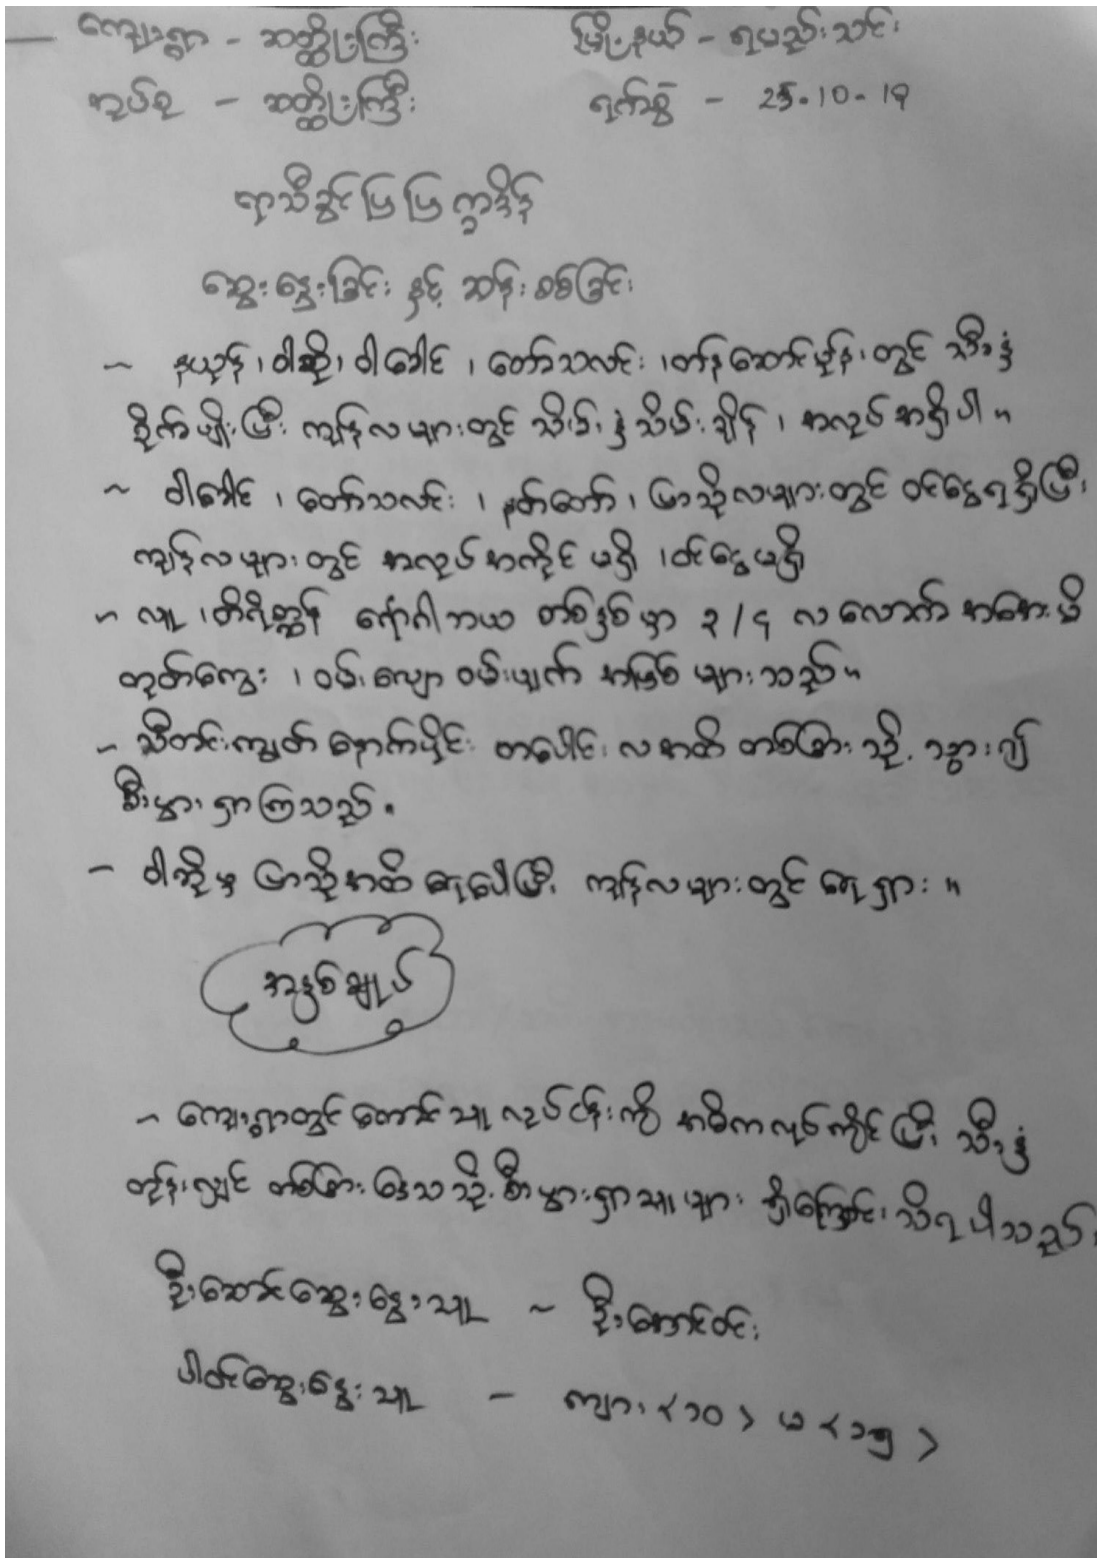 ကျေးရွာ - ဆတ္ထိုးကြီး မြို့နယ် - ရမည်းသင်း
အုပ်စု - ဆတ္ထိုးကြီး ရက်စွဲ - 25-10-19
ရာသီခွင်ပြ ပြက္ခဒိန်
ဆွေးနွေးခြင်း နှင့် ဆန်းစစ်ခြင်း
~ နယုန်၊ ဝါဆို၊ ဝါခေါင်၊ တော်သလင်း၊ တန်ဆောင်မုန်းတွင် သီးနှံ
စိုက်ပျိုးပြီး ကျန်လများတွင် သီးနှံသိမ်းချိန်၊ အလုပ်အရှိပါ။
~ ဝါခေါင်၊ တော်သလင်း၊ နတ်တော်၊ ပြာသိုလများတွင် ဝင်ငွေရရှိပြီး
ကျန်လများတွင် အလုပ်အကိုင်မရှိ၊ ဝင်ငွေမရှိ
~ လူ၊ တိရိစ္ဆာန် ရောဂါဘယ တစ်နှစ်မှာ ၃/၄ လလောက် အအေးမိ
တုတ်ကွေး၊ ဝမ်းလျော ဝမ်းပျက် အဖြစ်များသည်။
- သီတင်းကျွတ် နောက်ပိုင်း တပေါင်းလအထိ တစ်ခြားသို့ သွား၍
စီးပွားရှာကြသည်။
- ဝါဆိုမှ ပြာသိုအထိ ရေပေါပြီး ကျန်လများတွင် ရေရှား။
အနှစ်ချုပ်
- ကျေးရွာတွင် တောင်သူလုပ်ငန်းကို အဓိကလုပ်ကိုင်ပြီး သီးနှံ
တုန်းလျှင် တစ်ခြားဒေသသို့ စီးပွားရှာသူများ ရှိကြောင်း သိရပါသည်။
ဦးဆောင်ဆွေးနွေးသူ ~ ဦးအောင်ဝင်း
ပါဝင်ဆွေးနွေးသူ - ကျား <၁၀> မ <၁၅>